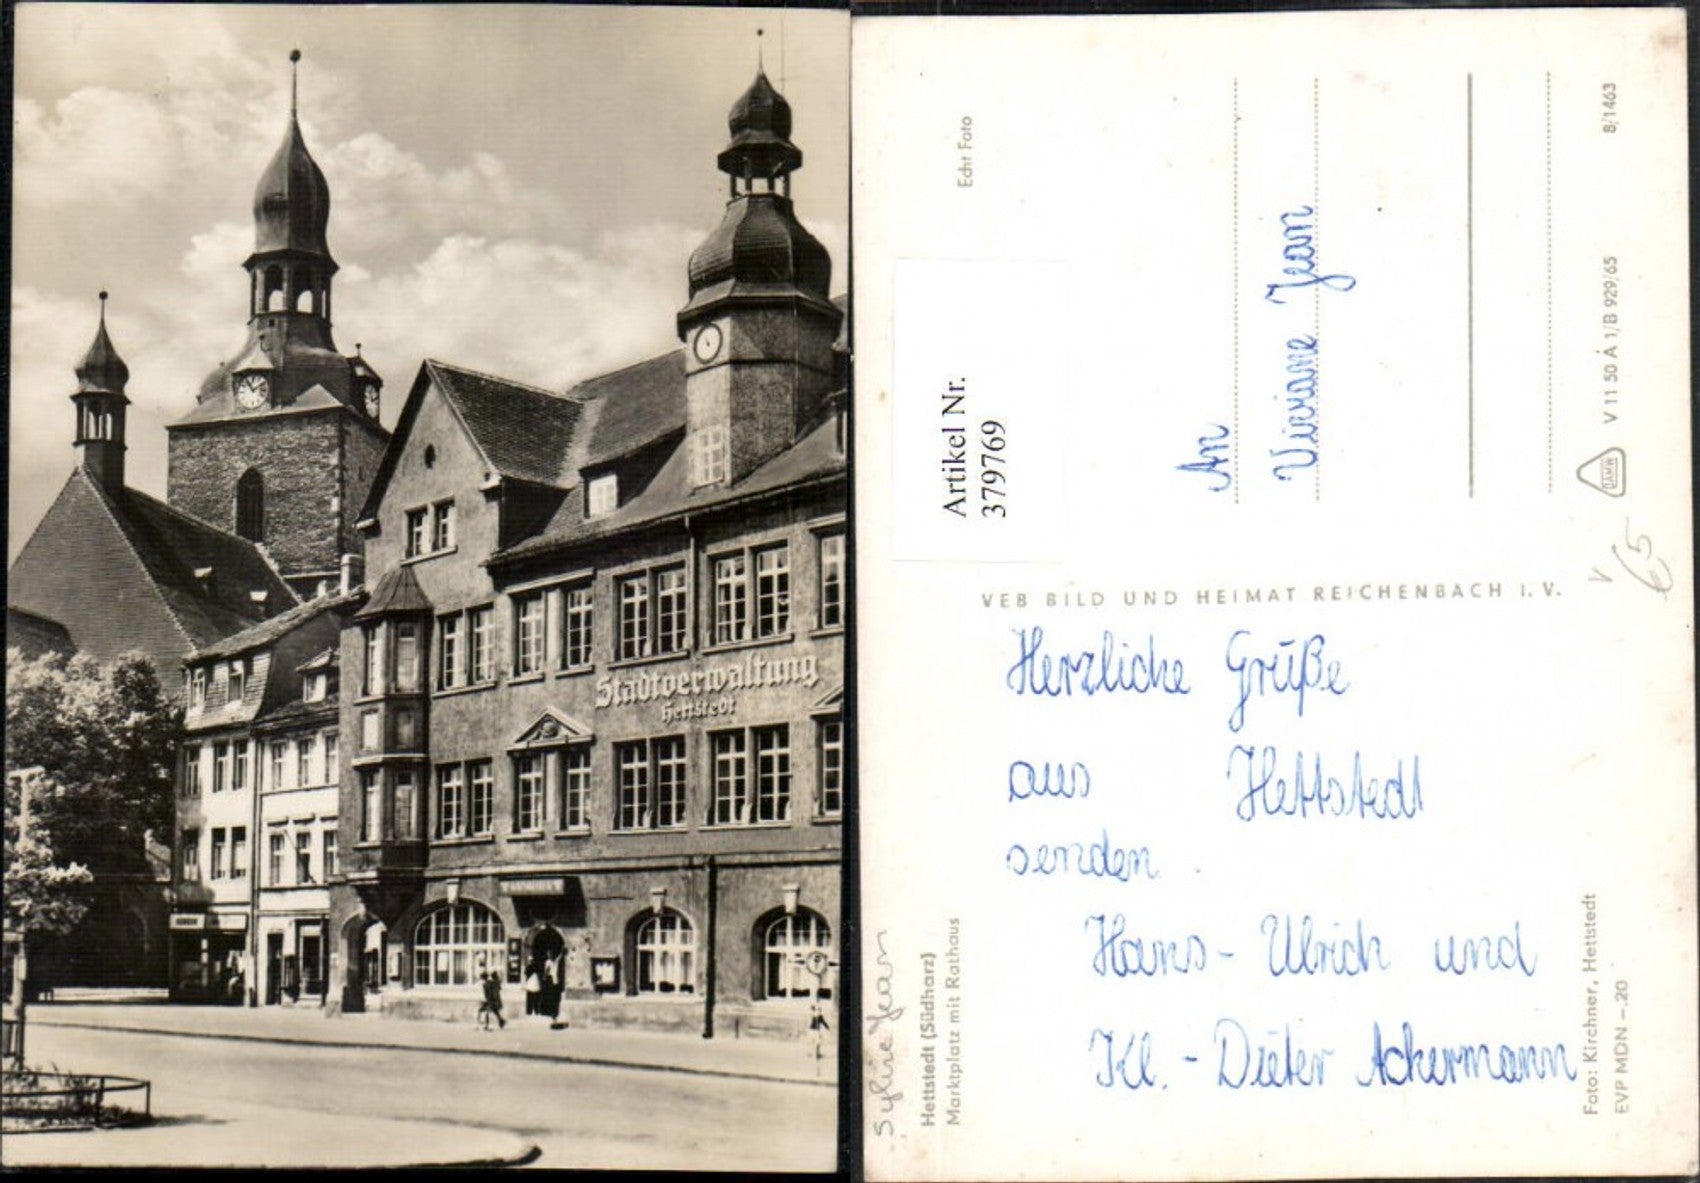 Stadtverwaltung
Hettstedt
Echt Foto
Artikel Nr.
379769
An
Viviane Jean
8/1463
V 11 50 A 1/B 929/65
DAMW
€5
VEB BILD UND HEIMAT REICHENBACH I. V.
Herzliche Grüße
aus Hettstedt
senden
Hans-Ulrich und
Kl.-Dieter Ackermann
Sylvie Jean
Hettstedt (Südharz)
Marktplatz mit Rathaus
Foto: Kirchner, Hettstedt
EVP MDN –.20